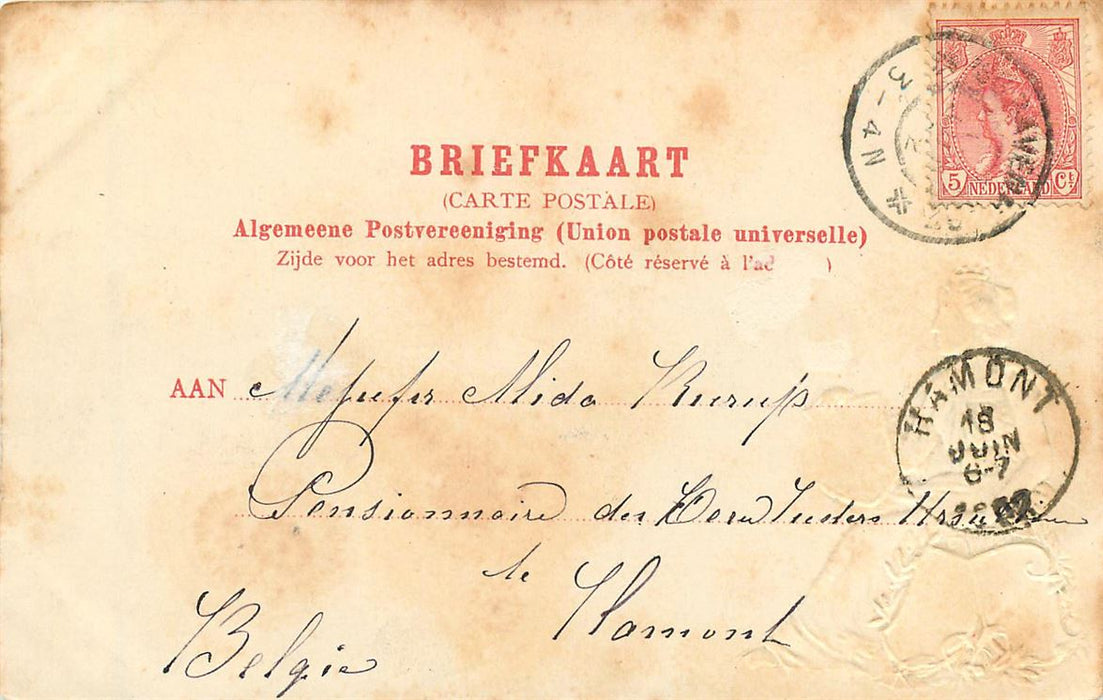 BRIEFKAART
(CARTE POSTALE)
Algemeene Postvereeniging (Union postale universelle)
Zijde voor het adres bestemd. (Côté réservé à l'ad )
5 NEDERLAND Ct
3-4N
HAMONT
18
JUIN
6-7
AAN Mejufer Mida
Pensionnaire der Eerw Zusters
te Hamont
Belgie